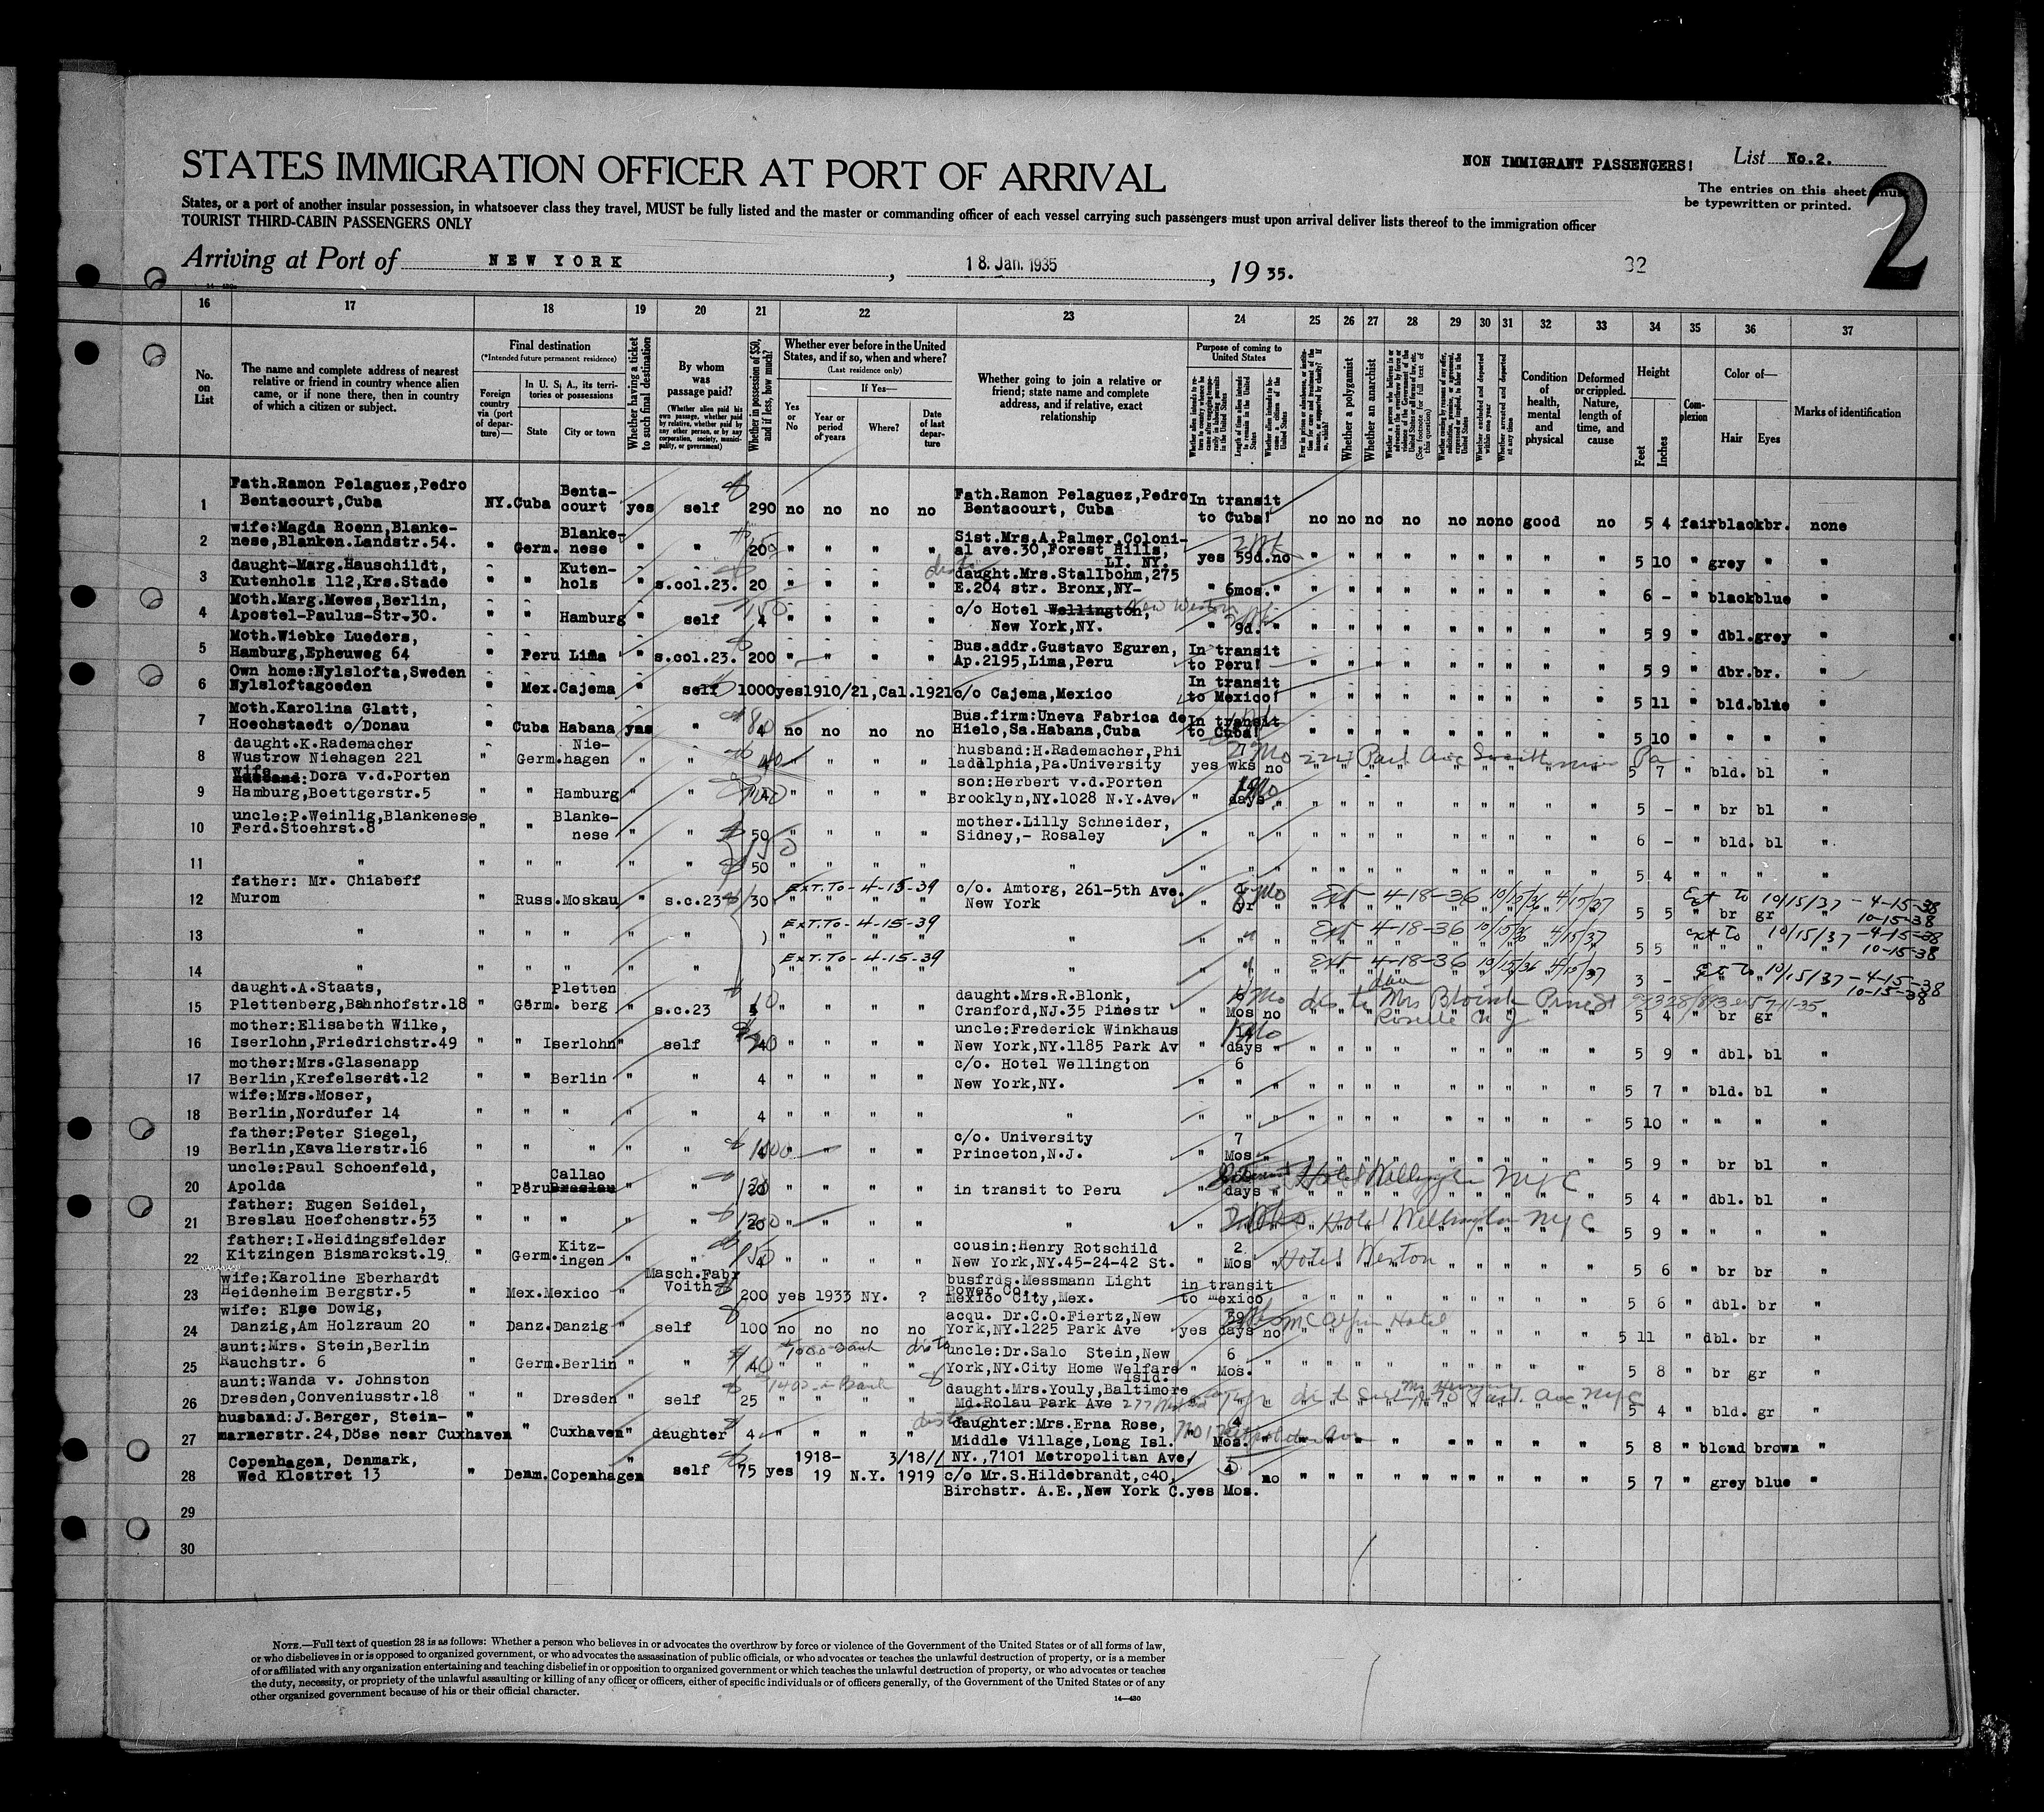 STATES IMMIGRATION OFFICER AT PORT OF ARRIVAL
NON IMMIGRANT PASSENGERS!
List No.2.
The entries on this sheet must
be typewritten or printed.
2
States, or a port of another insular possession, in whatsoever class they travel, MUST be fully listed and the master or commanding officer of each vessel carrying such passengers must upon arrival deliver lists thereof to the immigration officer
TOURIST THIRD-CABIN PASSENGERS ONLY
Arriving at Port of NEW YORK , 18. Jan. 1935 , 19 35.
32
16 17 18 19 20 21 22 23 24 25 26 27 28 29 30 31 32 33 34 35 36 37
No. on List
The name and complete address of nearest relative or friend in country whence alien came, or if none there, then in country of which a citizen or subject.
Final destination
(*Intended future permanent residence)
Foreign country via (port of departure)—
In U. S. A., its territories or possessions
State
City or town
Whether having a ticket to such final destination
By whom was passage paid?
(Whether alien paid his own passage, whether paid by relative, whether paid by any other person, or by any corporation, society, municipality, or government)
Whether in possession of $50, and if less, how much?
Whether ever before in the United States, and if so, when and where?
(Last residence only)
Yes or No
If Yes—
Year or period of years
Where?
Date of last departure
Whether going to join a relative or friend; state name and complete address, and if relative, exact relationship
Purpose of coming to United States
Length of time alien intends to remain in the United States
Whether alien intends to become a citizen of the United States
Whether a polygamist
Whether an anarchist
(See footnote for full text of this question)
Whether arrested and deported at any time
Condition of health, mental and physical
Deformed or crippled. Nature, length of time, and cause
Height
Feet
Inches
Complexion
Color of—
Hair
Eyes
Marks of identification
1 Fath.Ramon Pelaguez,Pedro Bentacourt,Cuba NY. Cuba Bentacourt yes self 290 no no no no Fath.Ramon Pelaguez,Pedro Bentacourt, Cuba In transit to Cuba! no no no no no no no good no 5 4 fair black br. none
2 wife:Magda Roenn,Blankenese,Blanken.Landstr.54. " Germ. Blankenese " " 20 " " " " Sist.Mrs.A.Palmer,Colonial ave.30,Forest Hills, LI. NY. yes 59d. no " " " " " " " " " 5 10 " grey " "
3 daught-Marg.Hauschildt, Kutenholz 112,Krs.Stade " " Kutenholz " s.col.23. 20 " " " " daught.Mrs.Stallbohm,275 E.204 str. Bronx,NY- " 6mos. " " " " " " " " " " 6 - " black blue "
4 Moth.Marg.Mewes,Berlin, Apostel-Paulus-Str-30. " " Hamburg " self 4 150 " " " " c/o Hotel Wellington, New Weston New York,NY. " 9d. " " " " " " " " " " 5 9 " dbl. grey "
5 Moth.Wiebke Lueders, Hamburg,Epheuweg 64 " Peru Lima " s.col.23. 200 " " " " Bus.addr.Gustavo Eguren, Ap.2195,Lima,Peru In transit to Peru! " " " " " " " " " 5 9 " dbr. br. "
6 Own home:Nylslofta,Sweden Nylsloftagoeden " Mex. Cajema " self 1000 yes 1910/21,Cal. 1921 c/o Cajema,Mexico In transit to Mexico! " " " " " " " " " 5 11 " bld. blue "
7 Moth.Karolina Glatt, Hoechstaedt o/Donau " Cuba Habana yes " 4 80 no no no no Bus.firm:Uneva Fabrica de Hielo,Sa.Habana,Cuba In transit to Cuba! " " " " " " " " " 5 10 " " " "
8 daught.K.Rademacher Wustrow Niehagen 221 " Germ. Niehagen " " 4 40 " " " " husband:H.Rademacher,Philadalphia,Pa.University yes wks no " " " " " " " " " 5 7 " bld. bl "
9 wife husband: Dora v.d.Porten Hamburg,Boettgerstr.5 " " Hamburg " " " " " " son:Herbert v.d.Porten Brooklyn,NY.1028 N.Y.Ave. " days " " " " " " " " " " 5 - " br bl "
10 uncle:P.Weinlig,Blankenese Ferd.Stoehrst.8 " " Blankenese " " 50 " " " " mother.Lilly Schneider, Sidney,- Rosaley " " " " " " " " " " " " 6 - " bld. bl "
11 " " " " " " 50 " " " " " " " " " " " " " " " " " 5 4 " " " "
12 father: Mr. Chiabeff Murom " Russ. Moskau " s.c.23 30 EXT.TO-4-15-39 " " " " c/o. Amtorg, 261-5th Ave. New York " " Ext 4-18-36 10/15/36 4/15/37 5 5 " br gr " Ext to 10/15/37 - 4-15-38 10-15-38
13 " " " " " " EXT.TO-4-15-39 " " " " " " " " Ext 4-18-36 10/15/36 4/15/37 5 5 " " " " Ext to 10/15/37 - 4-15-38 10-15-38
14 " " " " " " EXT.TO-4-15-39 " " " " " " " " Ext 4-18-36 10/15/36 4/15/37 3 - " " " " Ext to 10/15/37 - 4-15-38 10-15-38
15 daught.A.Staats, Plettenberg,Bahnhofstr.18 " Germ. Plettenberg " s.c.23 10 " " " " daught.Mrs.R.Blonk, Cranford,NJ.35 Pinestr " Mos no " " " " " " " " " 5 4 " br gr "
16 mother:Elisabeth Wilke, Iserlohn,Friedrichstr.49 " " Iserlohn " self " " " " uncle:Frederick Winkhaus New York,NY.1185 Park Av " 14 days " " " " " " " " " " 5 9 " dbl. bl "
17 mother:Mrs.Glasenapp Berlin,Krefelserdt.12 " " Berlin " " 4 " " " " c/o. Hotel Wellington New York,NY. " 6 " " " " " " " " " " " 5 7 " bld. bl "
18 wife:Mrs.Moser, Berlin,Nordufer 14 " " " " " 4 " " " " " " " " " " " " " " " " " 5 10 " " " "
19 father:Peter Siegel, Berlin,Kavalierstr.16 " " " " " " " " " c/o. University Princeton,N.J. " 7 Mos " " " " " " " " " " 5 9 " br bl "
20 uncle:Paul Schoenfeld, Apolda " Peru Callao Breslau " " 20 " " " " in transit to Peru " days " Hotel Wellington NYC 5 4 " dbl. bl "
21 father: Eugen Seidel, Breslau Hoefchenstr.53 " " " " " 20 " " " " " " " Hotel Wellington NYC 5 9 " " " "
22 father:I.Heidingsfelder Kitzingen Bismarckst.19 " Germ. Kitzingen " " 4 150 " " " " cousin:Henry Rotschild New York,NY.45-24-42 St. " 2 Mos " Hotel Weston 5 6 " br br "
23 wife:Karoline Eberhardt Heidenheim Bergstr.5 " Mex. Mexico " Masch.Fabr Voith 200 yes 1933 NY. ? busfrds.Messmann Light Power Co., Mexico City,Mex. in transit to mexico " " " " " " " " " 5 6 " dbl. br "
24 wife: Else Dowig, Danzig,Am Holzraum 20 " Danz. Danzig " self 100 no no no no acqu. Dr.C.O.Fiertz,New York,NY.1225 Park Ave yes days no McAlpin Hotel 5 11 " dbl. br "
25 aunt:Mrs. Stein,Berlin Rauchstr. 6 Germ. Berlin " " 40 " " " " uncle:Dr.Salo Stein,New York,NY.City Home Welfare Isld. " 6 Mos. " " " " " " " " " " 5 8 " br gr "
26 aunt:Wanda v. Johnston Dresden,Conveniusstr.18 " " Dresden " self 25 " " " " daught.Mrs.Youly,Baltimore Md.Rolau Park Ave 5 4 " bld. gr "
27 husband:J.Berger, Steinmarnerstr.24,Döse near Cuxhaven " " Cuxhaven " daughter 4 " " " " daughter:Mrs.Erna Rose, Middle Village,Long Isl. NY.,7101 Metropolitan Ave. " 4 Mos. " " " " " " " " " " 5 8 " blond brown "
28 Copenhagen, Denmark, Wed Klostret 13 " Denm. Copenhagen " self 75 yes 1918-19 N.Y. 3/18/1919 c/o Mr.S.Hildebrandt,c40, Birchstr. A.E.,New York C. yes 4 Mos. no " " " " " " " " " 5 7 " grey blue "
29
30
NOTE.—Full text of question 28 is as follows: Whether a person who believes in or advocates the overthrow by force or violence of the Government of the United States or of all forms of law,
or who disbelieves in or is opposed to organized government, or who advocates the assassination of public officials, or who advocates or teaches the unlawful destruction of property, or is a member
of or affiliated with any organization entertaining and teaching disbelief in or opposition to organized government or which teaches the unlawful destruction of property, or who advocates or teaches
the duty, necessity, or propriety of the unlawful assaulting or killing of any officer or officers, either of specific individuals or of officers generally, of the Government of the United States or of any
other organized government because of his or their official character.
14—430